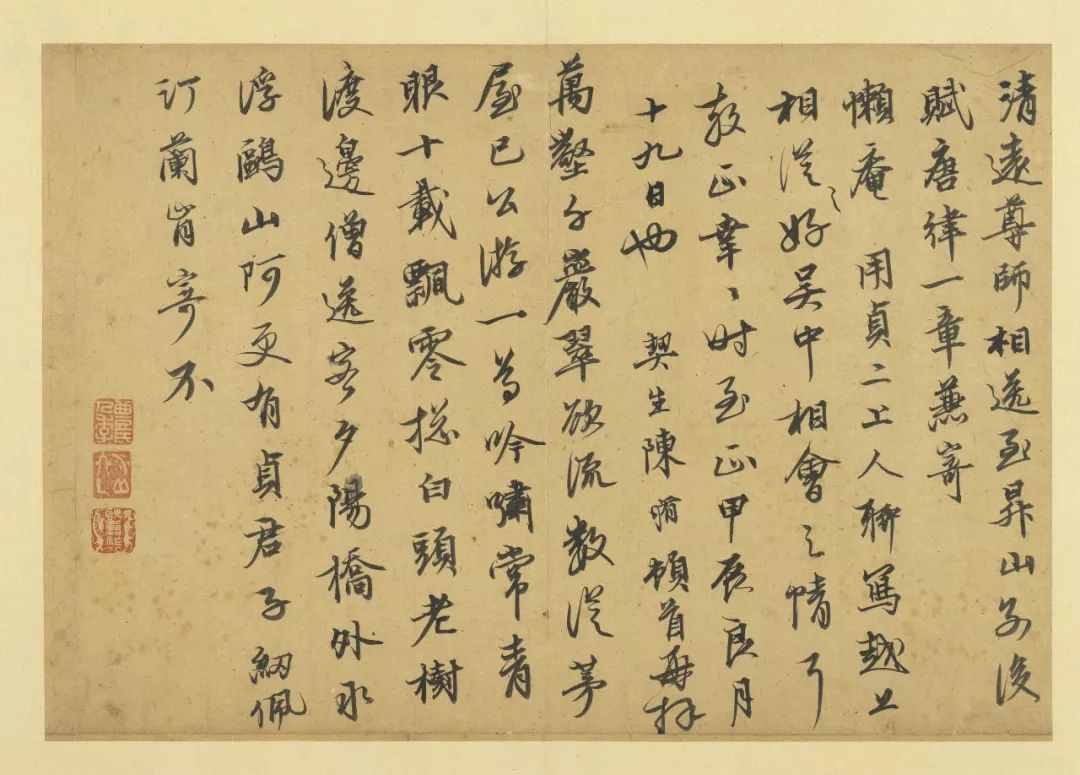 清遠尊師相送至昇山別後
賦唐律一章兼寄
懶庵 用貞二上人聊寫越上
相從之好吳中相會之情丐
教正幸〻时至正甲辰良月
十九日也 契生陳脩頓首再拜
萬壑千巖翠欲流數從茅
屋已公游一為吟嘯常青
眼十載飄零摠白頭老樹
渡邊僧送客夕陽橋外水
浮鷗山阿更有貞君子紉佩
汀蘭肯寄不